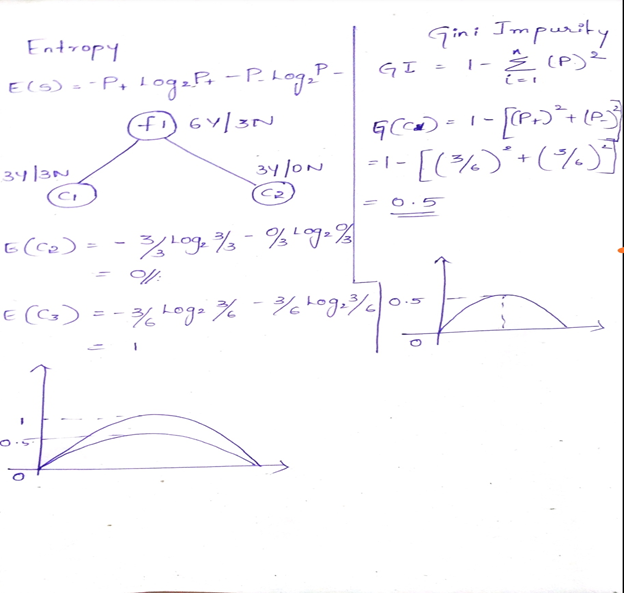 Entropy
E(S) = -P+ Log2P+ - P- Log2P-
f1 6Y/3N
3Y/3N
3Y/0N
C1
C2
E(C2) = - 3/3 Log2 3/3 - 0/3 Log2 0/3
= 0//.
E(C3) = - 3/6 Log2 3/6 - 3/6 Log2 3/6
= 1
1
0.5
0
Gini Impurity
GI = 1 - n Σ i=1 (P)2
G(C1) = 1 - [(P+)2 + (P-)2]
= 1 - [(3/6)2 + (3/6)2]
= 0.5
0.5
0